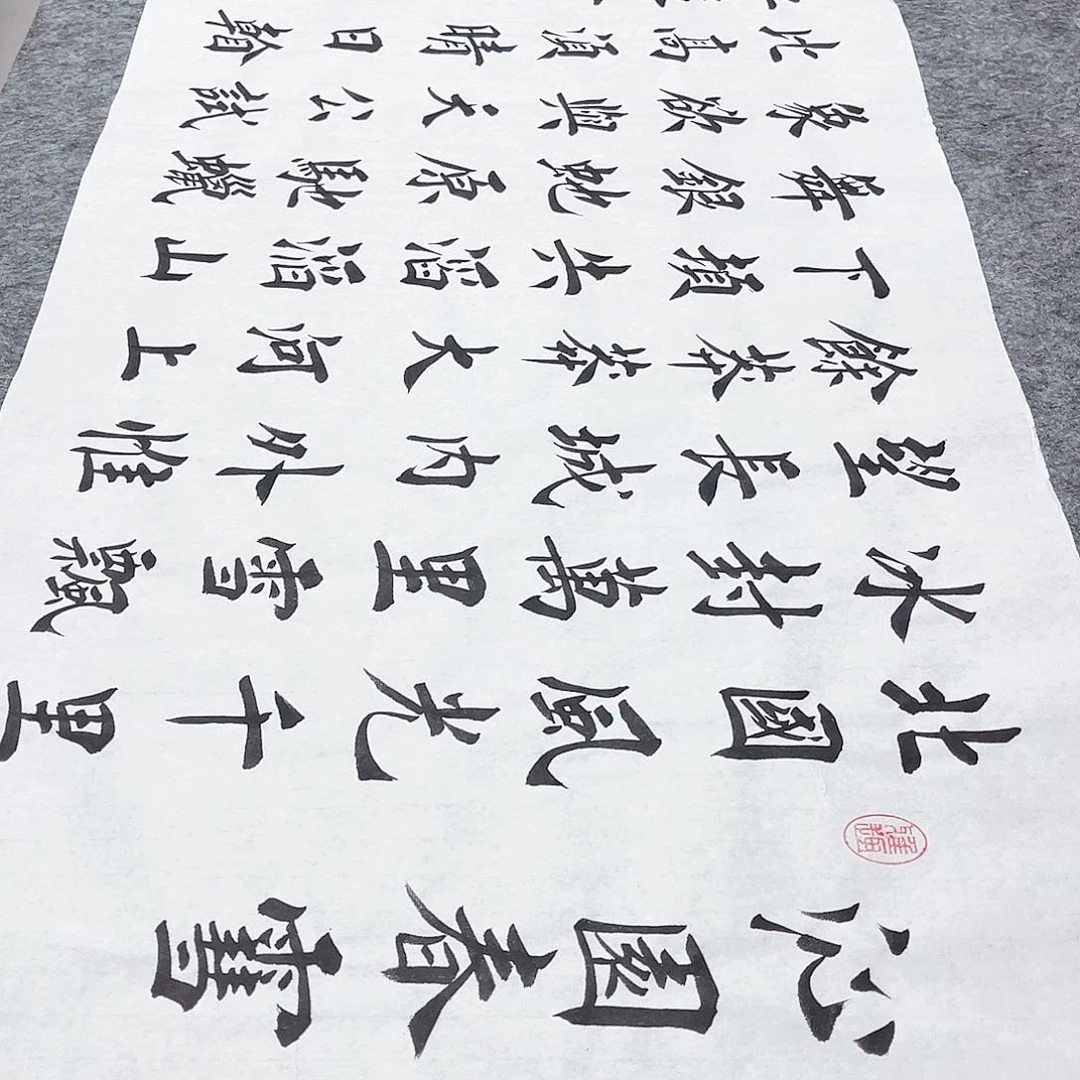 沁園春䨮
北國風光千里
冰封萬里雪飄
望長城內外惟
餘莽莽大河上
下頓失滔滔山
舞銀蛇原馳蠟
象欲與天公試
比高須晴日看